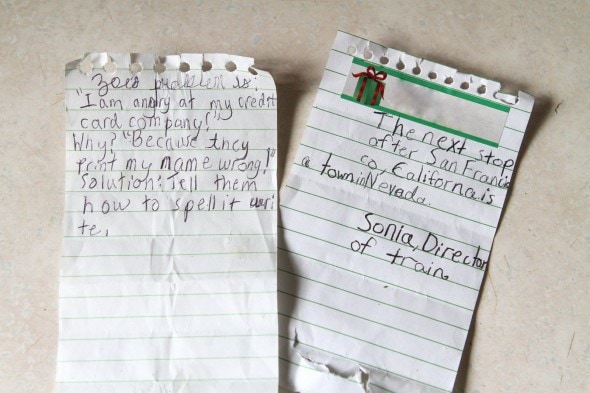 Zoe's problem is:
"I am angry at my credit
card company!"
Why? "Because they
print my name wrong!"
Solution: Tell them
how to spell it wri
te.
The next stop
after San Franis
co, California is
a town in Nevada.
Sonia, Director
of train